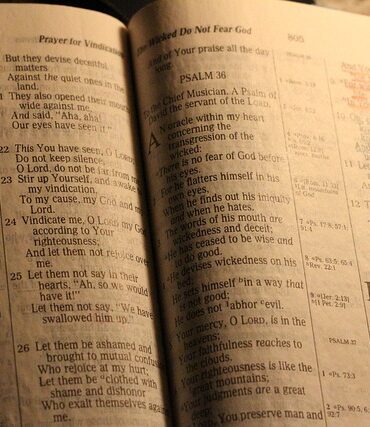 Prayer for Vindication
But they devise deceitful
matters
Against the quiet ones in the
land.
They also opened their mouth
wide against me,
And said, "Aha, aha!
Our eyes have seen it."
22 This You have seen, O LORD;
Do not keep silence;
O Lord, do not be far from me.
23 Stir up Yourself, and awake
my vindication,
To my cause, my God and m
Lord.
24 Vindicate me, O LORD my Go
according to Your
righteousness;
And let them not rejoice ove
me.
25 Let them not say in their
hearts, "Ah, so we would
have it!"
Let them not say, "We have
swallowed him up."
26 Let them be ashamed and
brought to mutual confus
Who rejoice at my hurt;
Let them be clothed with
shame and dishonor
Who exalt themselves aga
me.
The Wicked Do Not Fear God
805
And of Your praise all the day
long.
PSALM 36
To the Chief Musician. A Psalm of
David the servant of the LORD.
AN oracle within my heart
concerning the
transgression of the
wicked:
There is no fear of God before
his eyes.
For he flatters himself in his
own eyes,
When he finds out his iniquity
and when he hates.
The words of his mouth are
wickedness and deceit;
He has ceased to be wise and
do good.
He devises wickedness on his
bed;
He sets himself b in a way that
is not good;
He does not 1 abhor c evil.
Your mercy, O LORD, is in the
heavens;
Your faithfulness reaches to
the clouds.
Your righteousness is like the
great mountains;
Your judgments are a great
deep;
O LORD, You preserve man and
PSALM 37